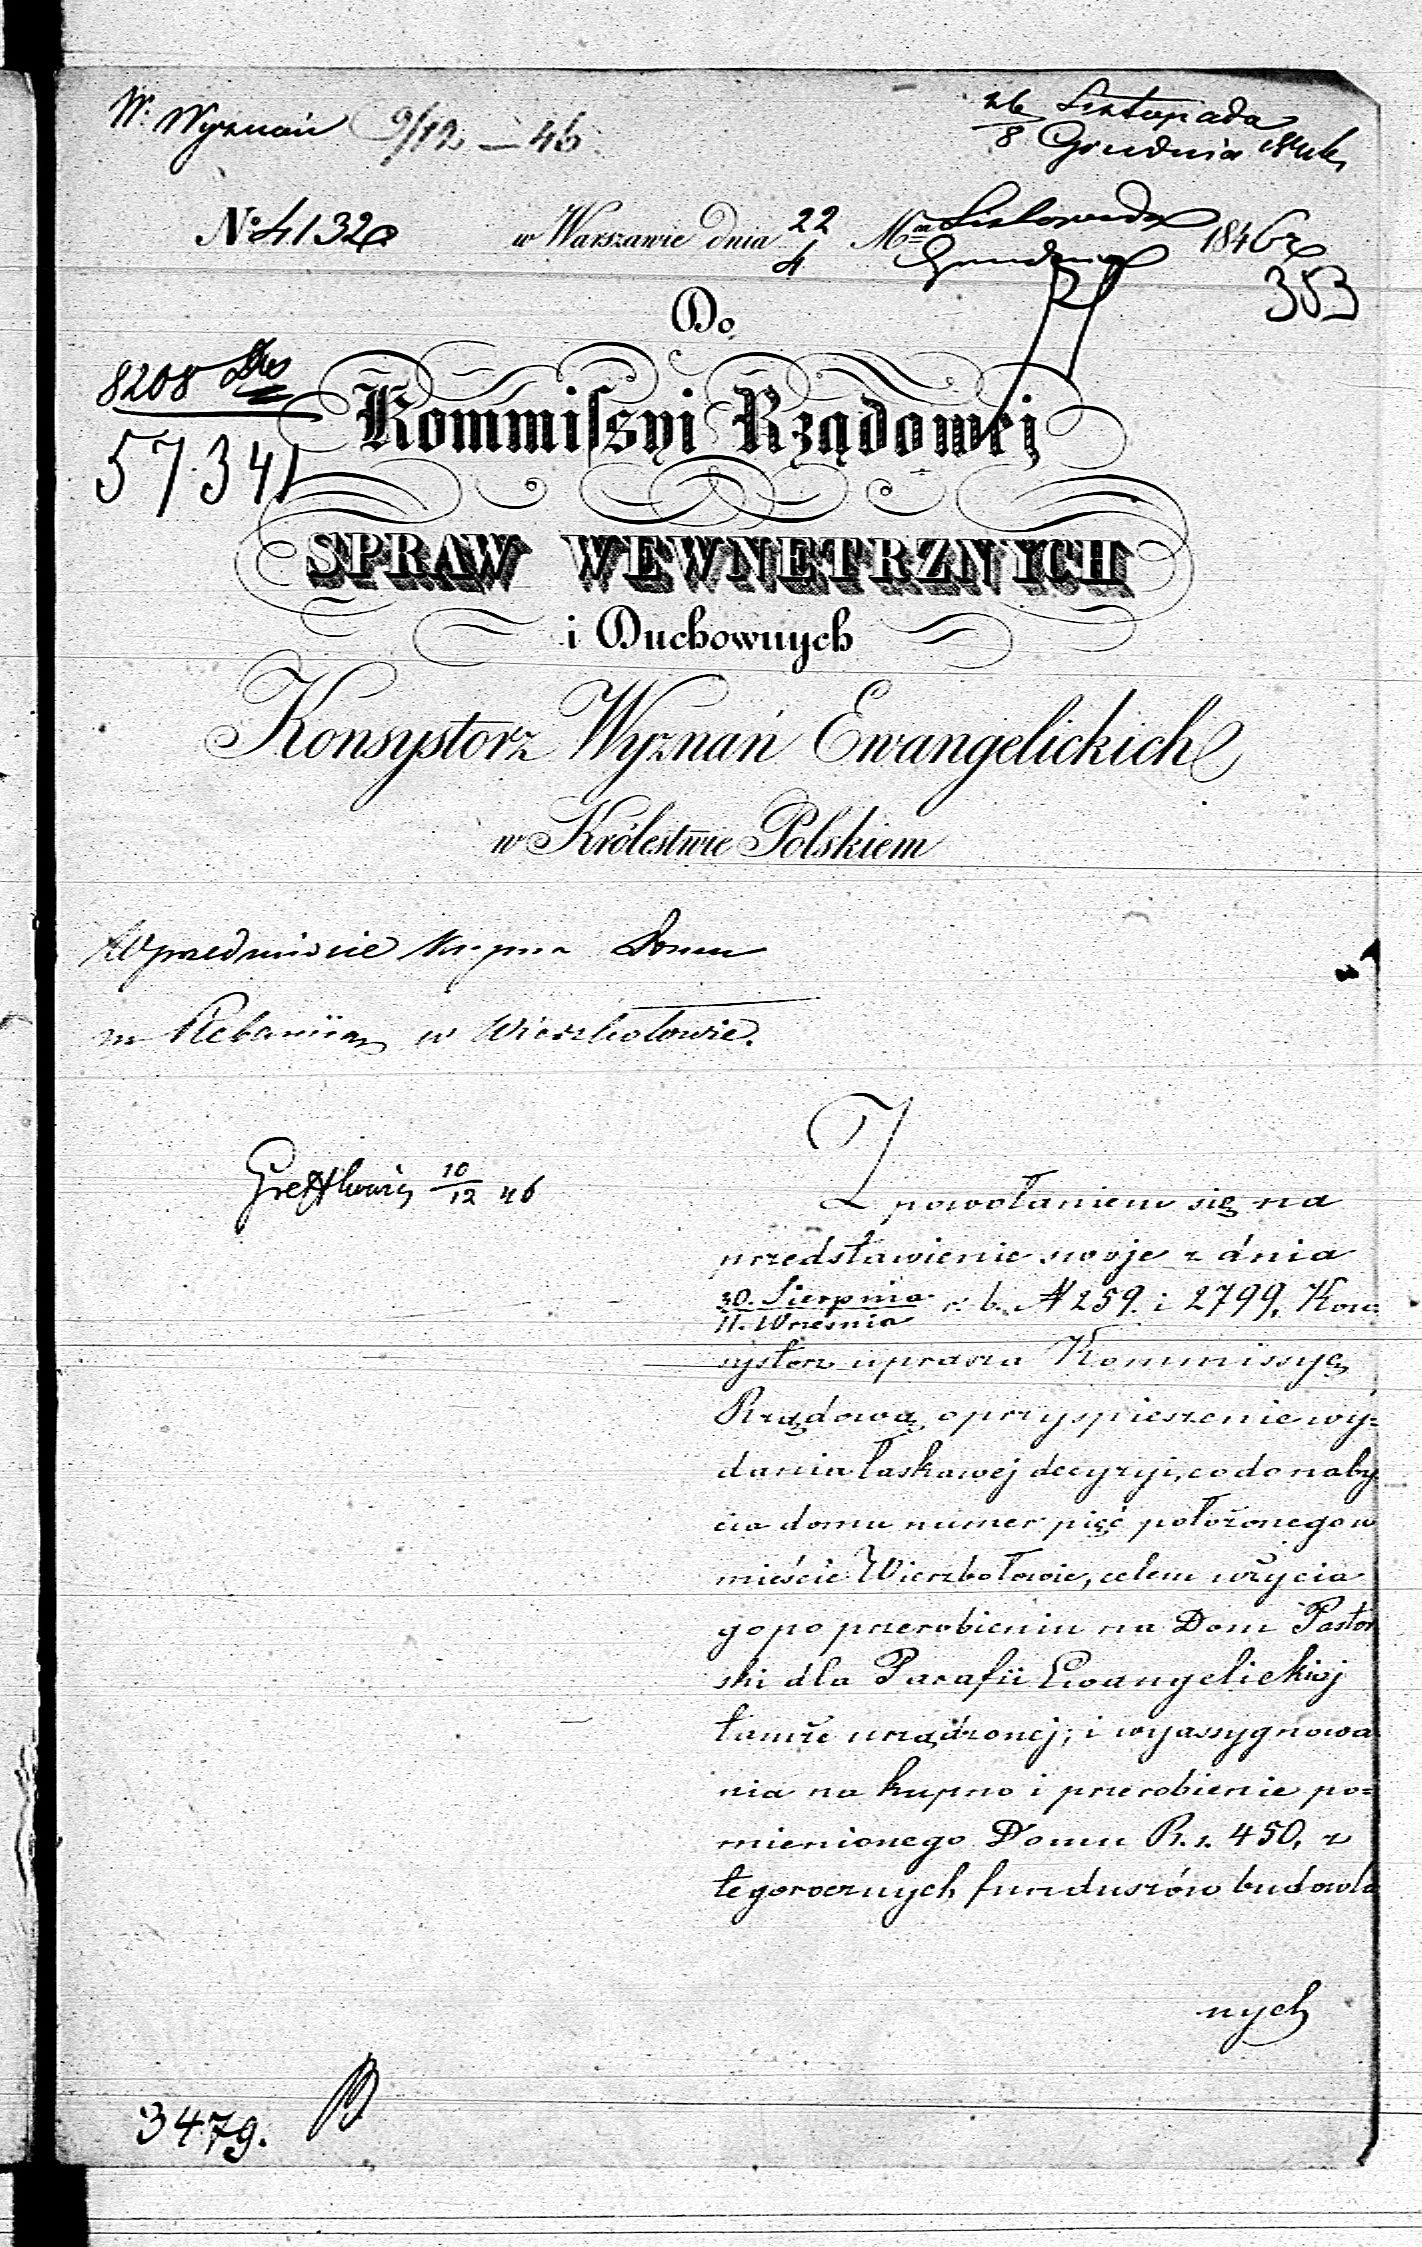 W. Wyznań 9/12 – 46.
26 Listopada
8 Grudnia 1846
No 4132 w Warszawie dnia 22/4 Mca Listopada/Grudnia 1846 r
353
Do
8208
57341
Kommissyi Rządowej
SPRAW WEWNETRZNYCH
i Duchownych
Konsystorz Wyznań Ewangelickich
w Królestwie Polskiem
W przedmiocie kupna Domu
na Plebaniją w Wierzbołowie.
10/12 46
Z powołaniem się na
przedstawienie swoje z dnia
30. Sierpnia/11. Września r. b. N 259. i 2799, Kon=
systorz uprasza Kommissyę
Rządową o przyspieszenie wy=
dania łaskawej decyzyi, co do naby
cia domu numer pięć położonego w
mieście Wierzbołowie, celem użycia
go po przerobieniu na Dom Pastor
ski dla Parafii Ewangelickiej
tamże urządzonej; i wyassygnowa
nia na kupno i przerobienie po=
mienionego Domu R. s. 450, z
tegorocznych funduszów budowla
nych
3479.